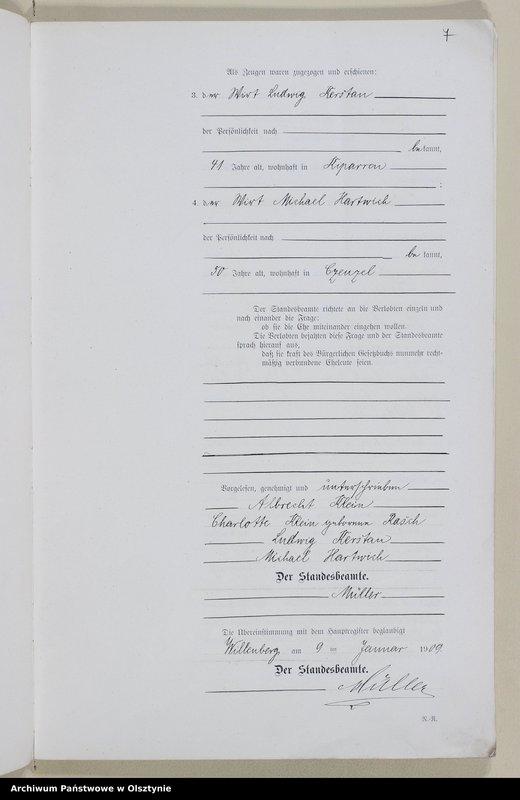 7
Als Zeugen waren zugezogen und erschienen:
3. der Wirt Ludwig Kerstan
der Persönlichkeit nach
bekannt,
41 Jahre alt, wohnhaft in Kiparren
;
4. der Wirt Michael Hartwich
der Persönlichkeit nach
bekannt,
50 Jahre alt, wohnhaft in Czenzel
Der Standesbeamte richtete an die Verlobten einzeln und
nach einander die Frage:
ob sie die Ehe miteinander eingehen wollen.
Die Verlobten bejahten diese Frage und der Standesbeamte
sprach hierauf aus,
daß sie kraft des Bürgerlichen Gesetzbuchs nunmehr recht-
mäßig verbundene Eheleute seien.
Vorgelesen, genehmigt und unterschrieben
Albrecht Klein
Charlotte Klein geborene Rasch
Ludwig Kerstan
Michael Hartwich
Der Standesbeamte.
Müller
Die Übereinstimmung mit dem Hauptregister beglaubigt
Willenberg am 9 ten Januar 1909.
Der Standesbeamte.
Müller
N.-R.
Archiwum Państwowe w Olsztynie